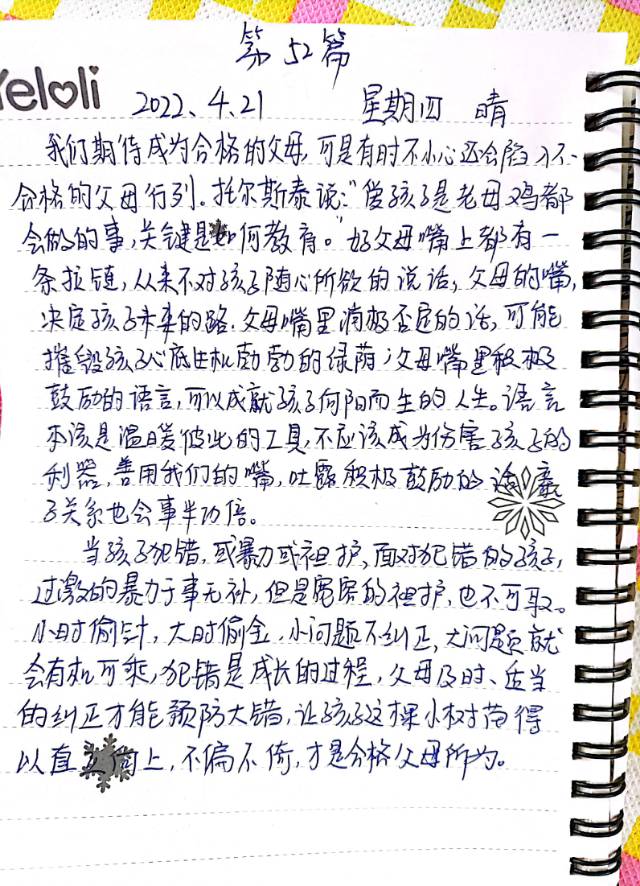 第52篇
Yeloli
2022.4.21 星期四 晴
我们期待成为合格的父母,可是有时不小心还会陷入不
合格的父母行列。托尔斯泰说:“爱孩子是老母鸡都
会做的事,关键是如何教育。”好父母嘴上都有一
条拉链,从来不对孩子随心所欲的说话,父母的嘴,
决定孩子未来的路.父母嘴里消极否定的话,可能
摧毁孩子心底生机勃勃的绿荫;父母嘴里积极
鼓励的语言,可以成就孩子向阳而生的人生。语言
本该是温暖彼此的工具,不应该成为伤害孩子的
利器,善用我们的嘴,吐露积极鼓励的话,亲
子关系也会事半功倍。
当孩子犯错,或暴力或袒护,面对犯错的孩子,
过激的暴力于事无补,但是宽容的袒护,也不可取。
小时偷针,大时偷金,小问题不纠正,大问题就
会有机可乘,犯错是成长的过程,父母及时、适当
的纠正才能预防大错,让孩子这棵小树苗得
以直立向上,不偏不倚,才是合格父母所为。